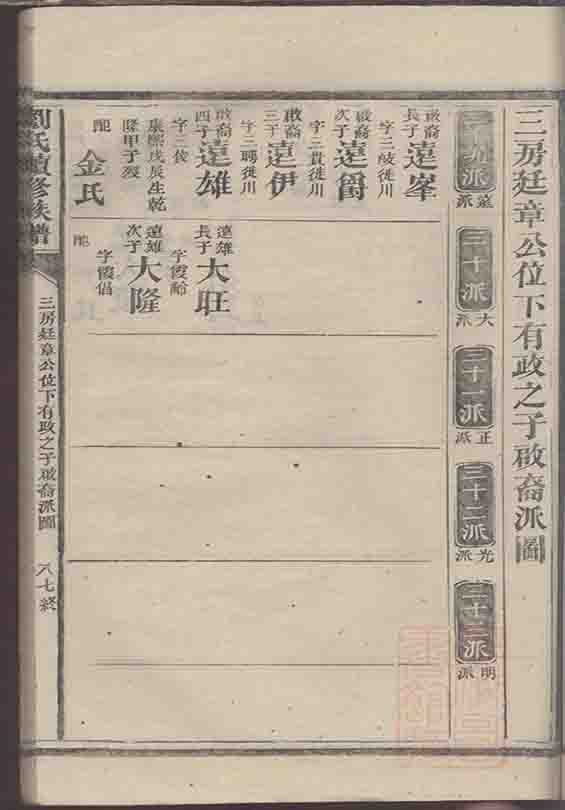 三房廷章公位下有政之子啟裔派圖
二十九派
遠派
三十派
大派
三十一派
正派
三十二派
光派
三十三派
明派
啟裔長子遠峯
字二岐徙川
啟裔次子遠爵
字二貴徙川
啟裔三子遠伊
字二聘徙川
啟裔四子遠雄
字二俊
康熙戊辰生乾
隆甲子歿
配金氏
遠雄長子大旺
字霞齡
遠雄次子大隆
字霞倡
配
劉氏續修族譜
三房廷章公位下有政之子啟裔派圖
八七終